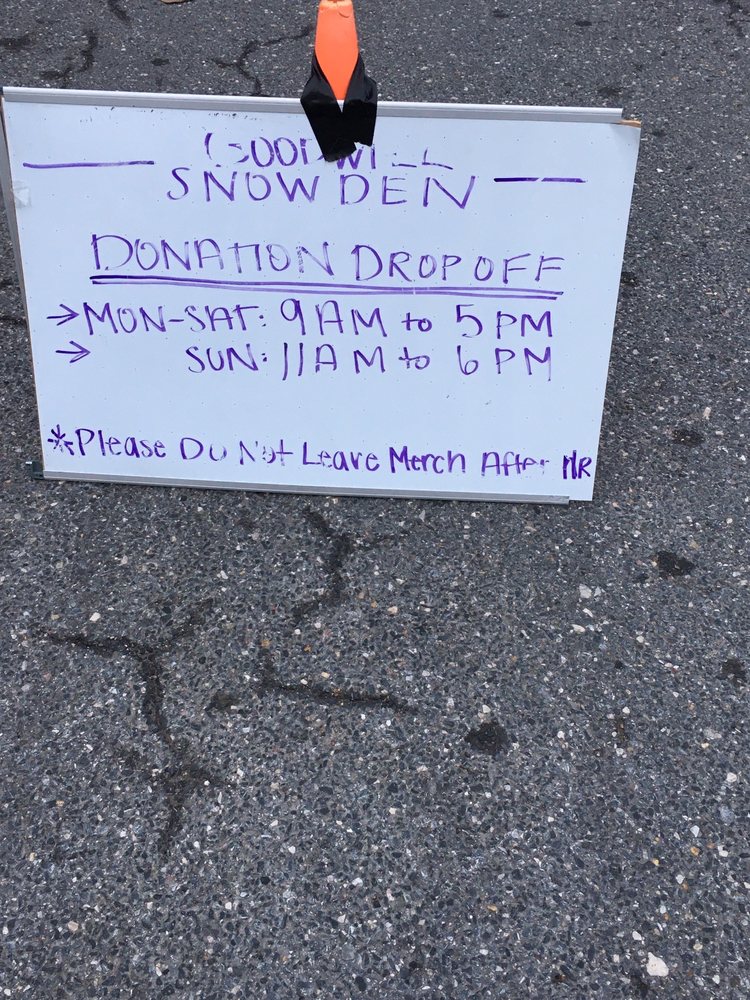 GOODWILL
SNOWDEN
DONATION DROP OFF
→MON-SAT: 9AM to 5PM
→ SUN: 11AM to 6PM
*Please Do Not Leave Merch After HR